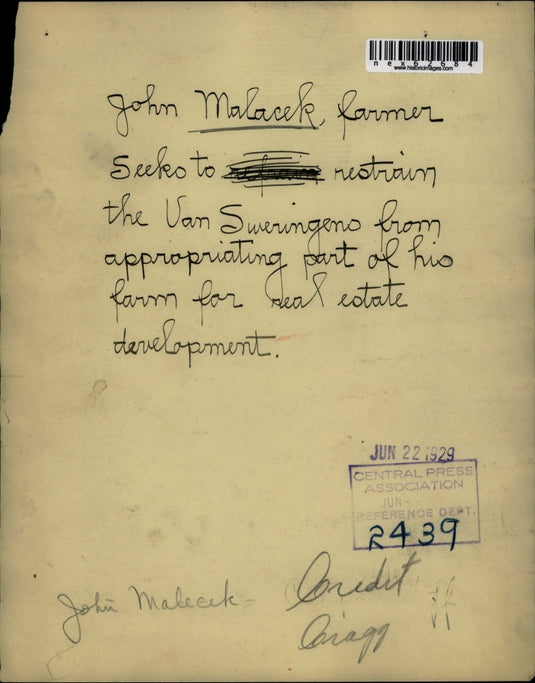 nex62684
www.historicimages.com
John Malacek, farmer
Seeks to restrain
the Van Sweringens from
appropriating part of his
farm for real estate
development.
JUN 22 1929
CENTRAL PRESS
ASSOCIATION
JUN -
REFERENCE DEPT.
2439
John Malecek -
Credit
Cragg